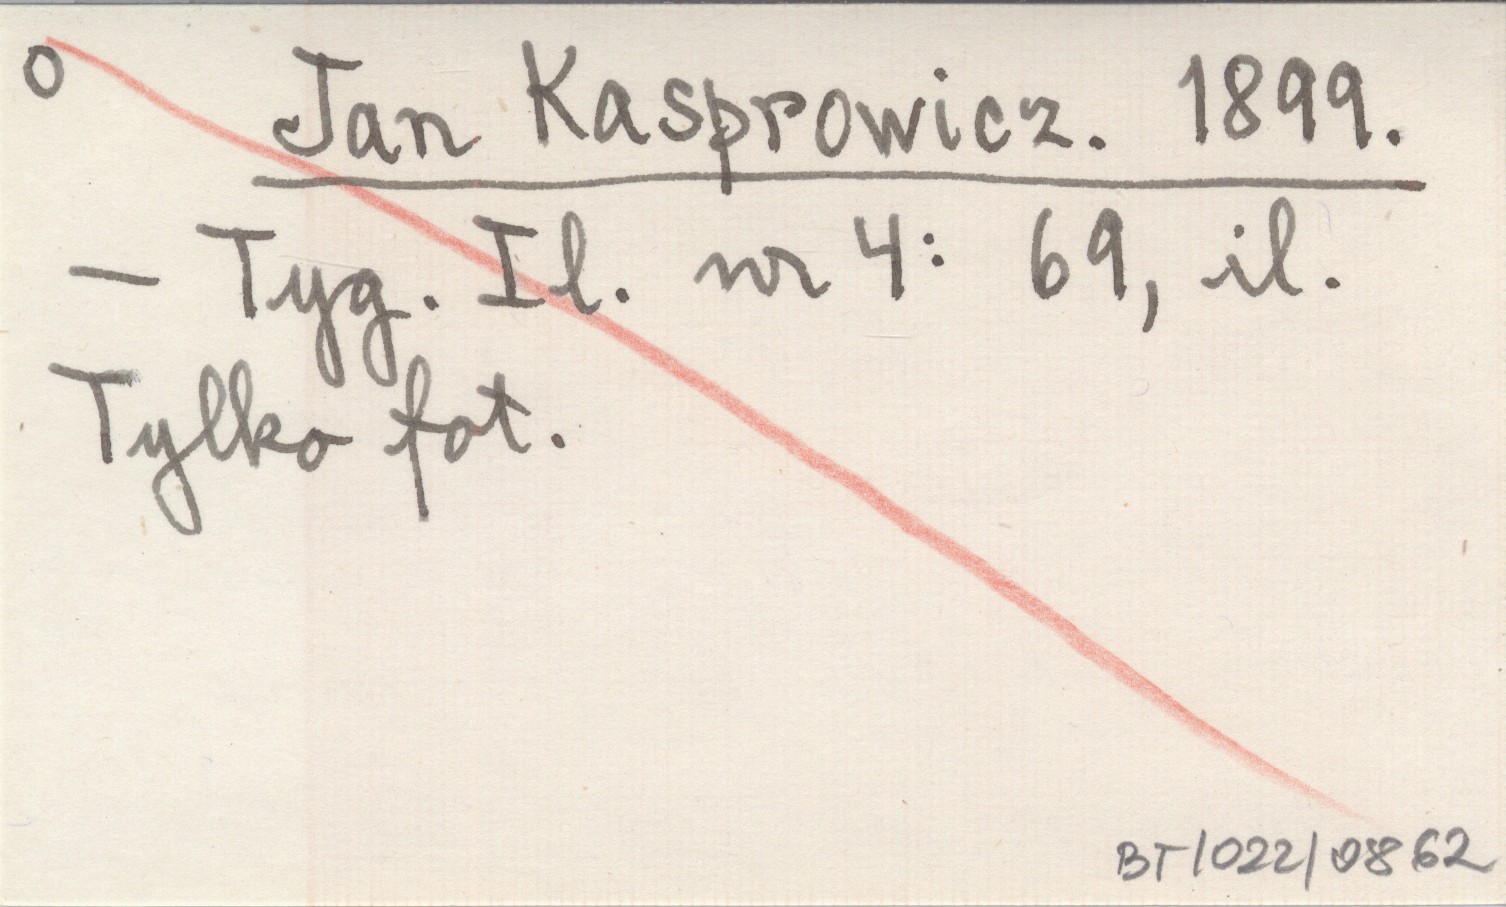 O Jan Kasprowicz. 1899.
— Tyg. Il. nr 4: 69, il.
Tylko fot.
BT/022/0862